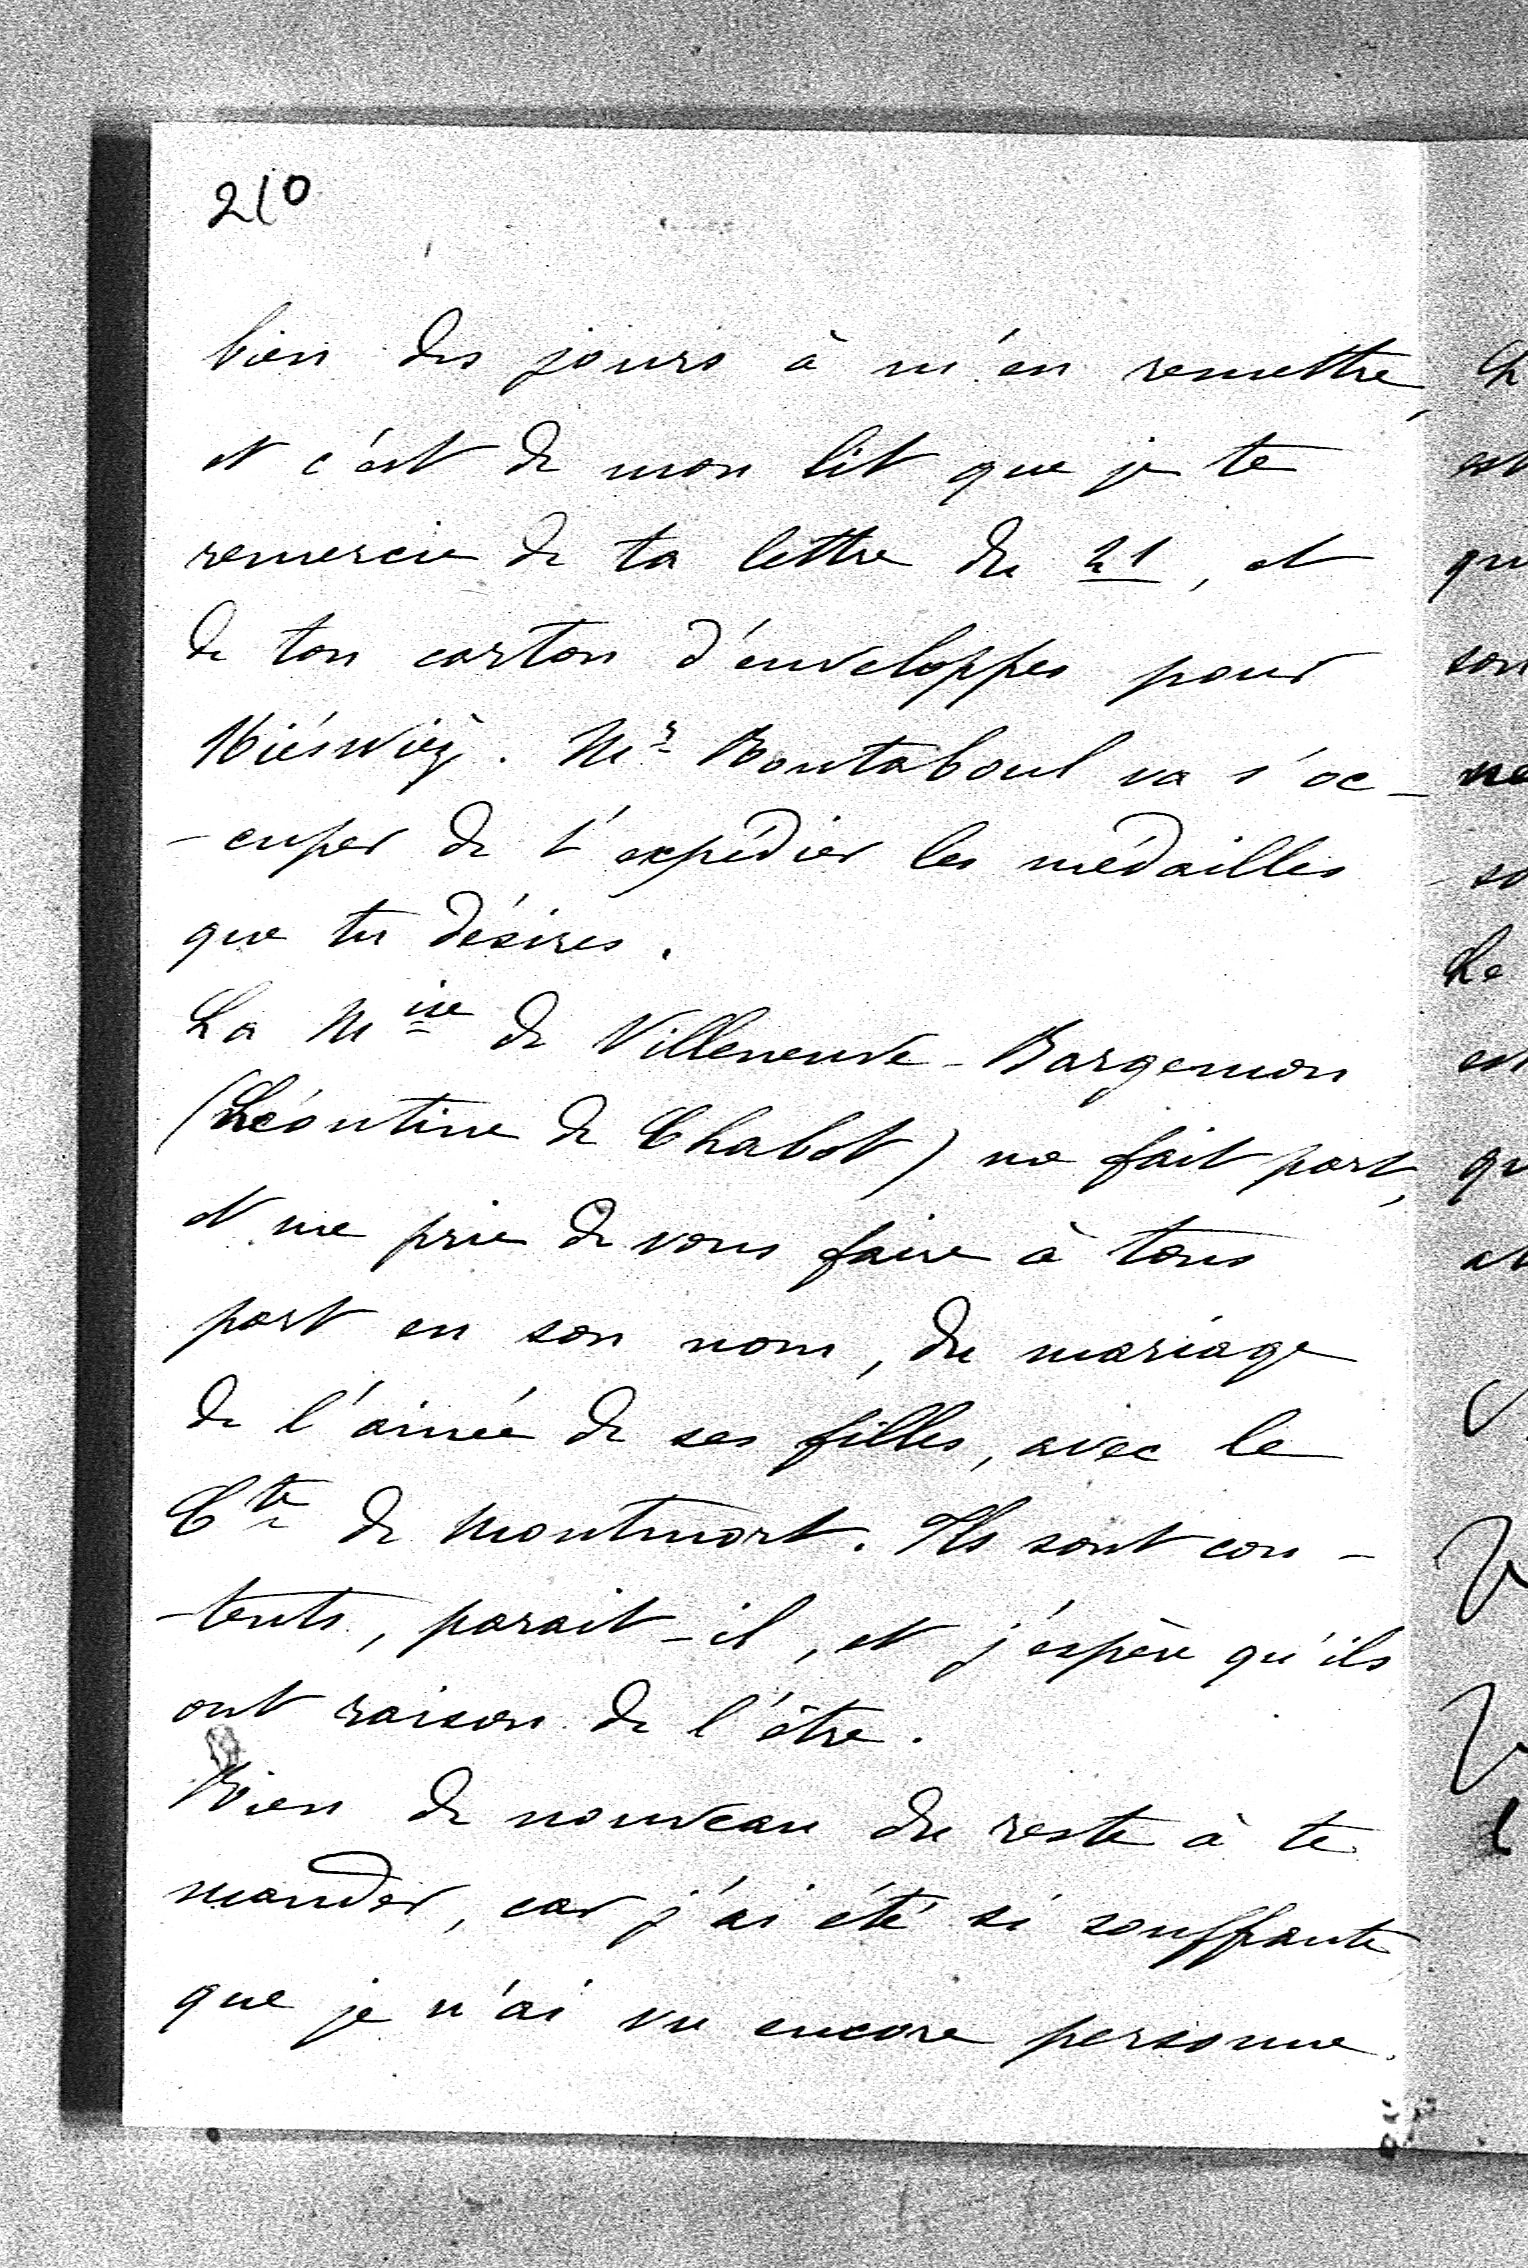 210
bien des jours à m'en remettre,
et c'est de mon lit que je te
remercie de ta lettre du 21, et
de ton carton d'enveloppes pour
Niéswiéz. Mr Boutaboul va s'oc-
-cuper de t'expédier les médailles
que tu désires.
La Mise de Villeneuve-Bargemon
(Léontine de Chabot) me fait part,
et me prie de vous faire à tous
part en son nom, du mariage
de l'ainée de ses filles, avec le
Cte de Montmort. Ils sont con-
-tents, parait-il, et j'espère qu'ils
ont raison de l'être.
Rien de nouveau du reste à te
mander, car j'ai été si souffrante
que je n'ai vu encore personne.